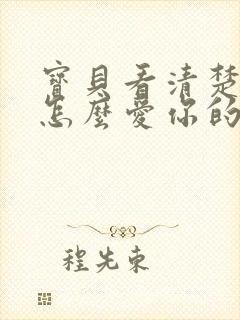 寶貝看清楚
怎麼愛你的
程先東